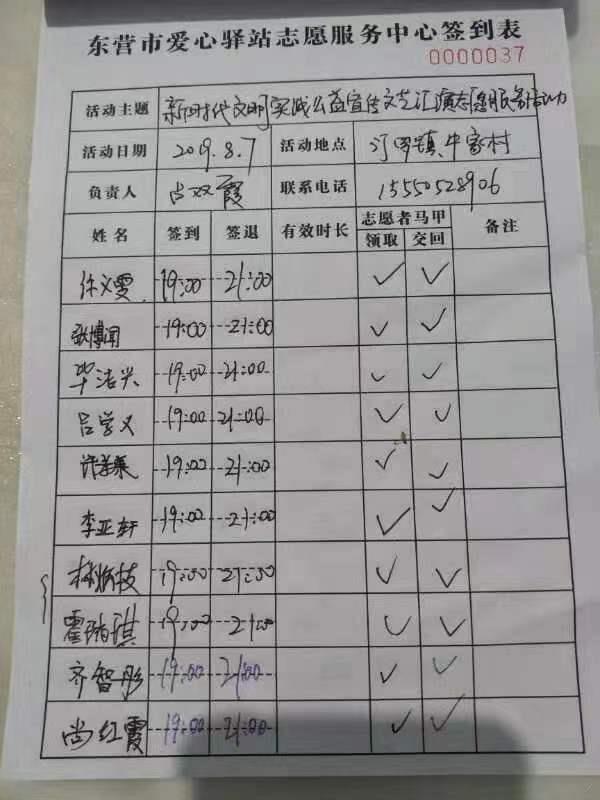 东营市爱心驿站志愿服务中心签到表
0000037
活动主题 新时代文明实践公益宣传文艺汇演志愿服务活动
活动日期 2019.8.7 活动地点 汀罗镇牛家村
负责人 尚红霞 联系电话 15550528906
姓名 签到 签退 有效时长 志愿者马甲 备注
领取 交回
19:00 21:00 ✓ ✓
张博闻 19:00 21:00 ✓ ✓
毕洁兴 19:00 21:00 ✓ ✓
吕学义 19:00 21:00 ✓ ✓
19:00 21:00 ✓ ✓
李亚轩 19:00 21:00 ✓ ✓
19:00 21:00 ✓ ✓
霍瑞琪 19:00 21:00 ✓ ✓
齐智彤 19:00 21:00 ✓ ✓
尚红霞 19:00 21:00 ✓ ✓